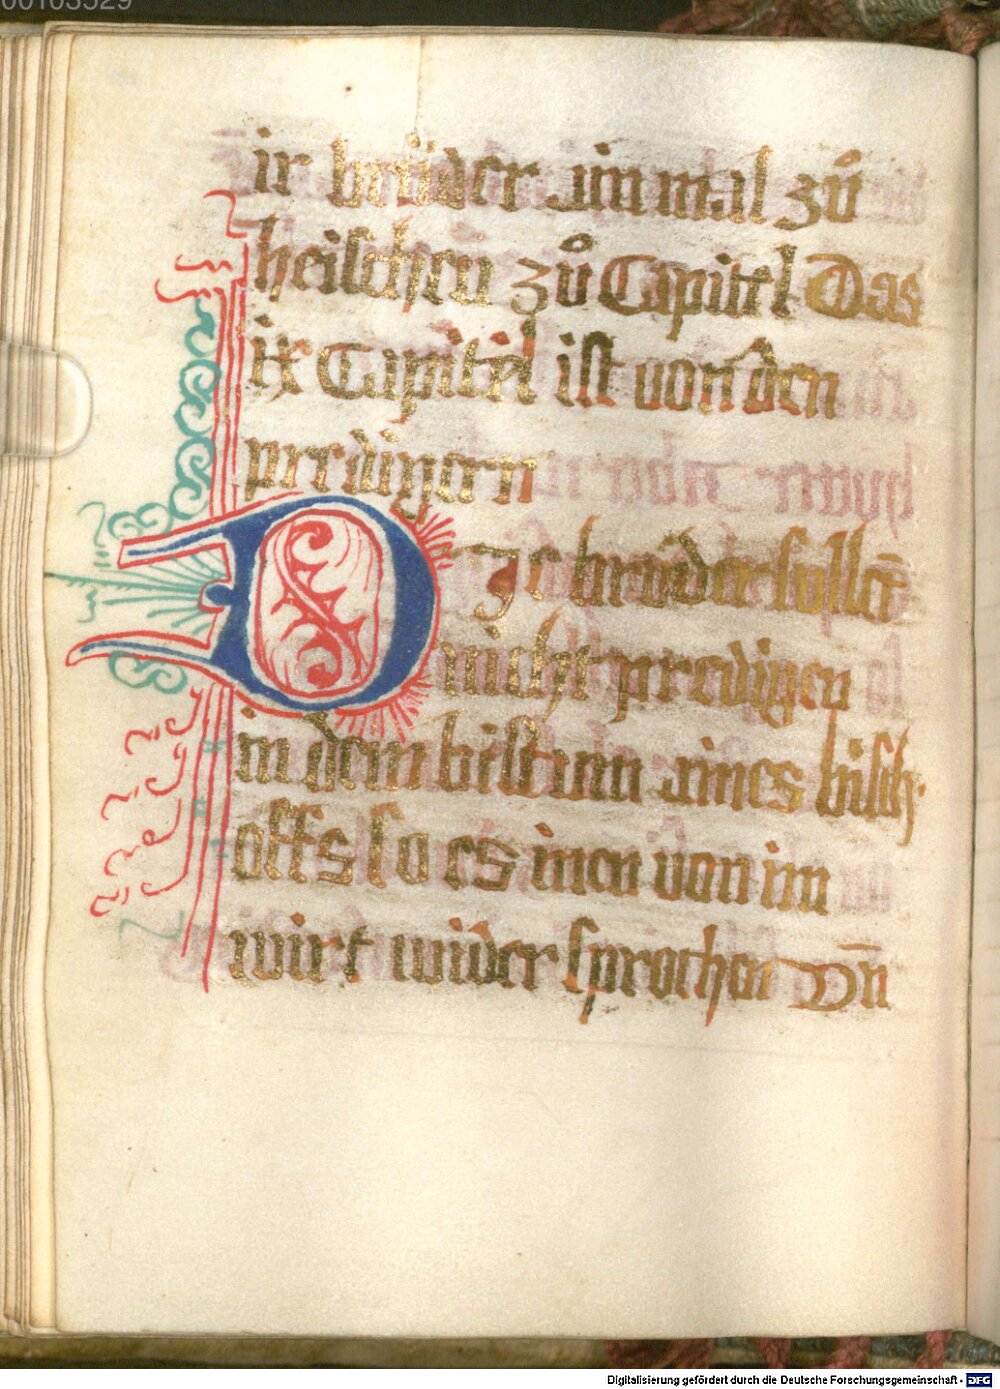 00103529
ir brüder ain mal zů
heischen zů Capittel Das
ix Capitel ist von den
predigern
DJe brüder sullē
nicht predigen
in dem bistum aines bisch
offs so es inen von im
wirt wider sprochen Vn̄
Digitalisierung gefördert durch die Deutsche Forschungsgemeinschaft - DFG